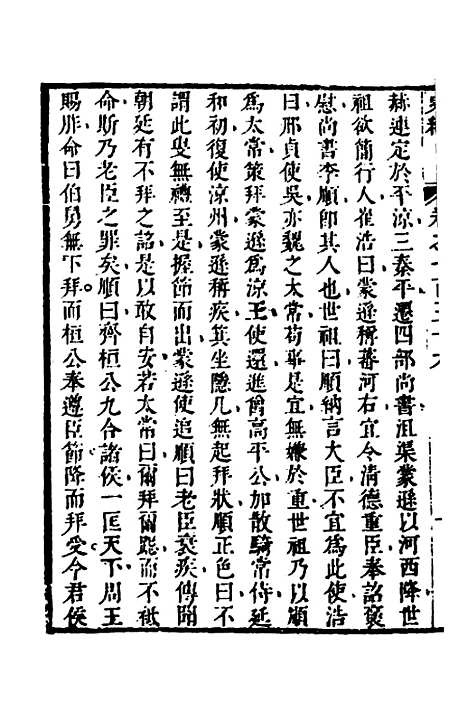 赫連定於平涼三秦平遷四部尚書沮渠蒙遜以河西降世
祖欲簡行人崔浩曰蒙遜稱蕃河右宜令清德重臣奉詔褒
慰尚書李順即其人也世祖曰順納言大臣不宜爲此使浩
曰邢貞使吳亦魏之太常苟事是宜無嫌於重世祖乃以順
爲太常策拜蒙遜爲涼王使還進爵高平公加散騎常侍延
和初復使涼州蒙遜稱疾箕坐隱几無起拜狀順正色曰不
謂此叟無禮至是握節而出蒙遜使追順曰老臣衰疾傳聞
朝廷有不拜之詔是以敢自安若太常曰爾拜爾跽而不祗
命斯乃老臣之罪矣順曰齊桓公九合諸侯一匡天下周王
賜胙命曰伯舅無下拜而桓公奉遵臣節降而拜受今君侯